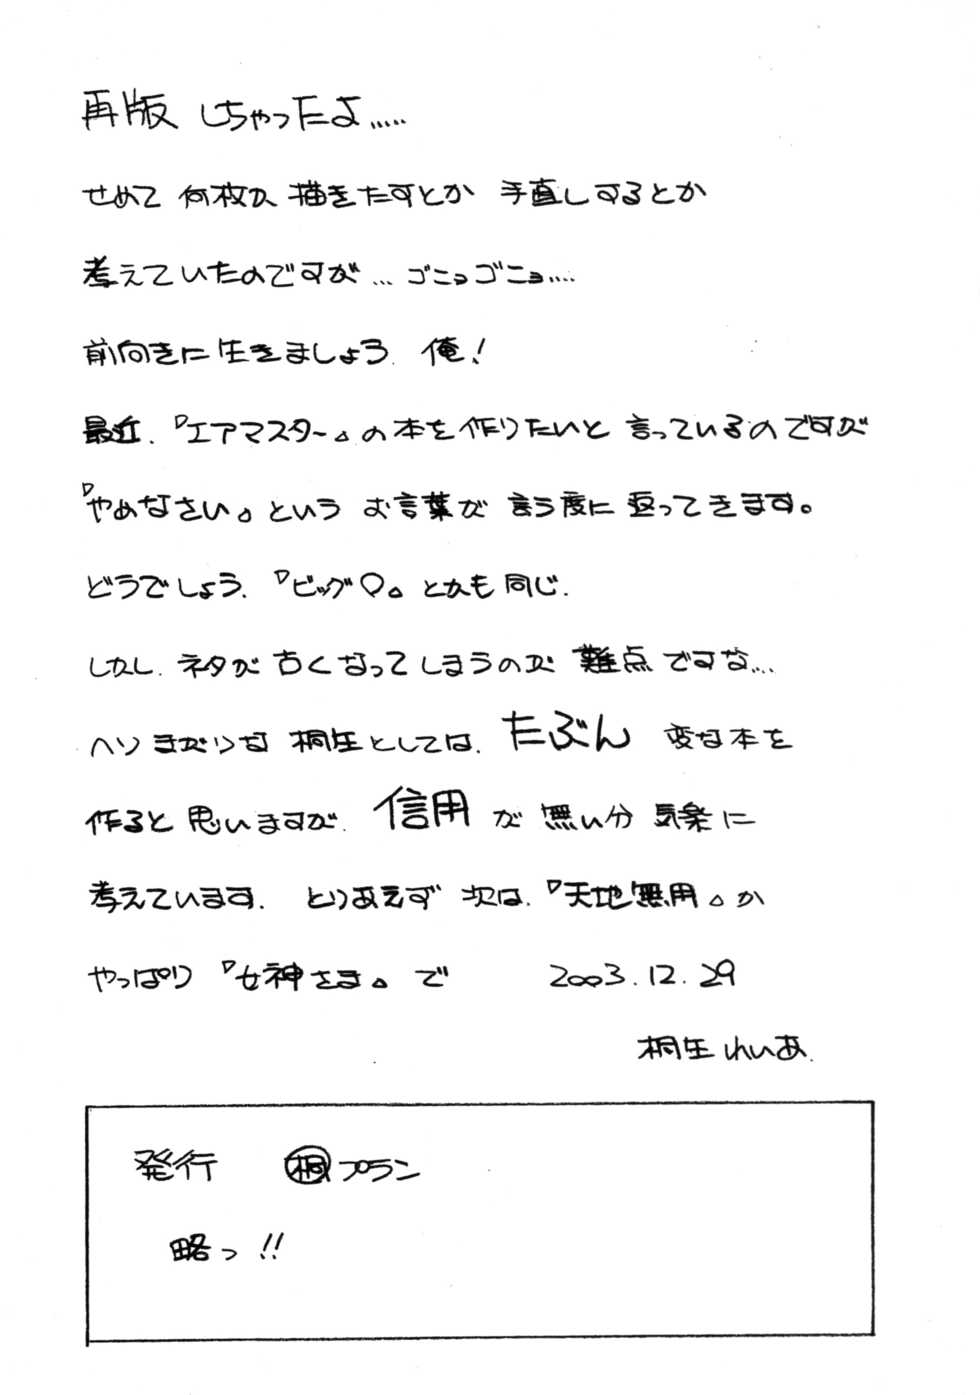 再版 しちゃったよ.....
せめて 何枚か 描きたすとか 手直しするとか
考えていたのですが... ゴニョゴニョ....
前向きに 生きましょう. 俺!
最近. 『エアマスター』の本を作りたいと 言っているのですが
『やめなさい』という お言葉が 言う度に 返ってきます。
どうでしょう. 『ビッグ〇』とかも同じ.
しかし. ネタが 古くなってしまうのが 難点ですな...
ヘソまがりな 桐生としては. たぶん 変な本を
作ると思いますが. 信用が 無い分 気楽に
考えています. とりあえず 次は. 『天地無用』か
やっぱり 『女神さま』で 2003.12.29
桐生れいあ.
発行 桐プラン
略っ!!